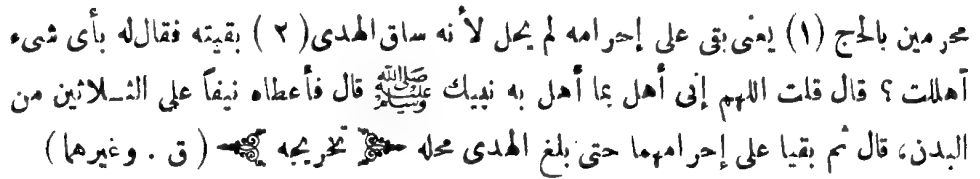 محرمين بالحج (١) يعنى بقى على إحرامه لم يحل لأنه ساق الهدى (٢) بقيته فقال له بأى شىء
أهللت ؟ قال قلت اللهم إنى أهل بما أهل به نبيك ﷺ قال فأعطاه نيفاً على الثلاثين من
البدن، قال ثم بقيا على إحرامهما حتى بلغ الهدى محله تخريجه (ق . وغيرهما)